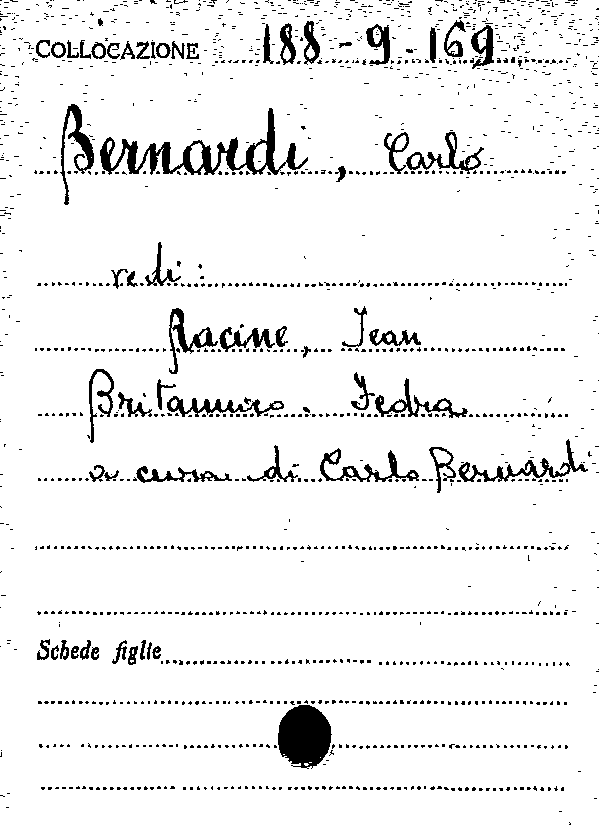 COLLOCAZIONE 188-9-169
Bernardi, Carlo
vedi:
Racine, Jean
Britannico. Fedra
a cura di Carlo Bernardi
Schede figlie